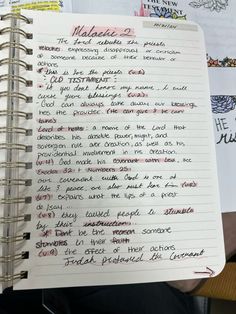 THE NEW
TESTAMENT
Malachi 2
The Lord rebukes the priests
rebuke: expressing disapproval or criticism
of someone because of their behavior or
actions.
this is for the priests (v.1)
OLD TESTAMENT:
If you dont honor my name, i will
curse your blessings (v.2)
God can always take away our blessings,
hes the provider (He can give & he can
take)
Lord of hosts: a name of the Lord that
describes his absolute power, might, and
sovereign rule over creation, as well as his
providential involvement in his creation.
(v.4) God made his covenant with Levi, see
Exodus 32 & Numbers 25.
our covenant with God is one of
life & peace, we also must fear him (v.5)
(v.7) explains what the lips of a priest
do/say...
(v.8) they caused people to stumble
by their instruction.
* Dont be the reason someone
stumbles in their faith
(v.9) the effect of their actions
the Covenant